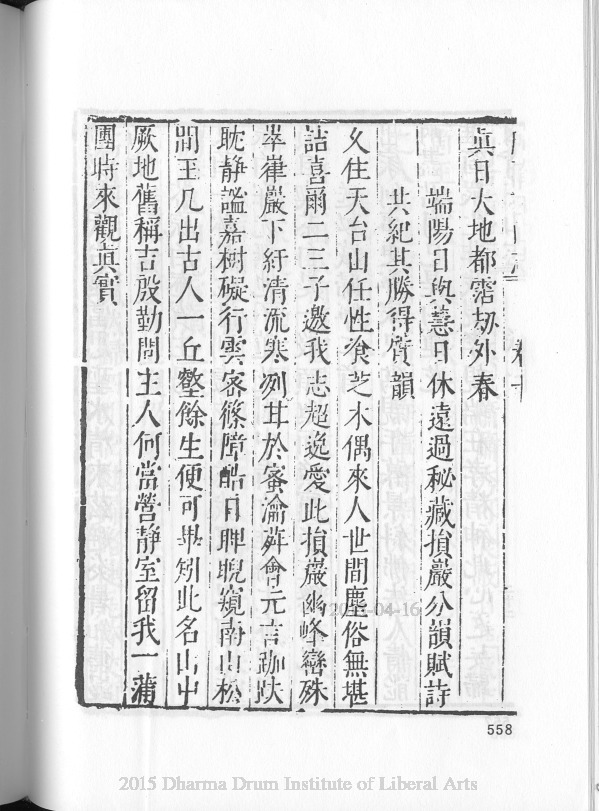 眞日大地都霑劫外春
端陽日與慧日休遠過秘藏損巖分韻賦詩
共紀其勝得質韻
久住天台山任性飡芝朮偶來人世間塵俗無堪
詰喜爾二三子邀我志超逸愛此損巖幽峰巒殊
崒嵂巖下紆清流寒冽甘於蜜瀹茗會元言跏趺
耽静謐嘉樹礙行雲密篠障酷日睥睨窺南山松
間王几出古人一丘壑餘生便可畢矧此名山中
厥地舊稱吉殷勤問主人何當營静室留我一蒲
團時來觀眞實
558
2015-04-16
2015 Dharma Drum Institute of Liberal Arts